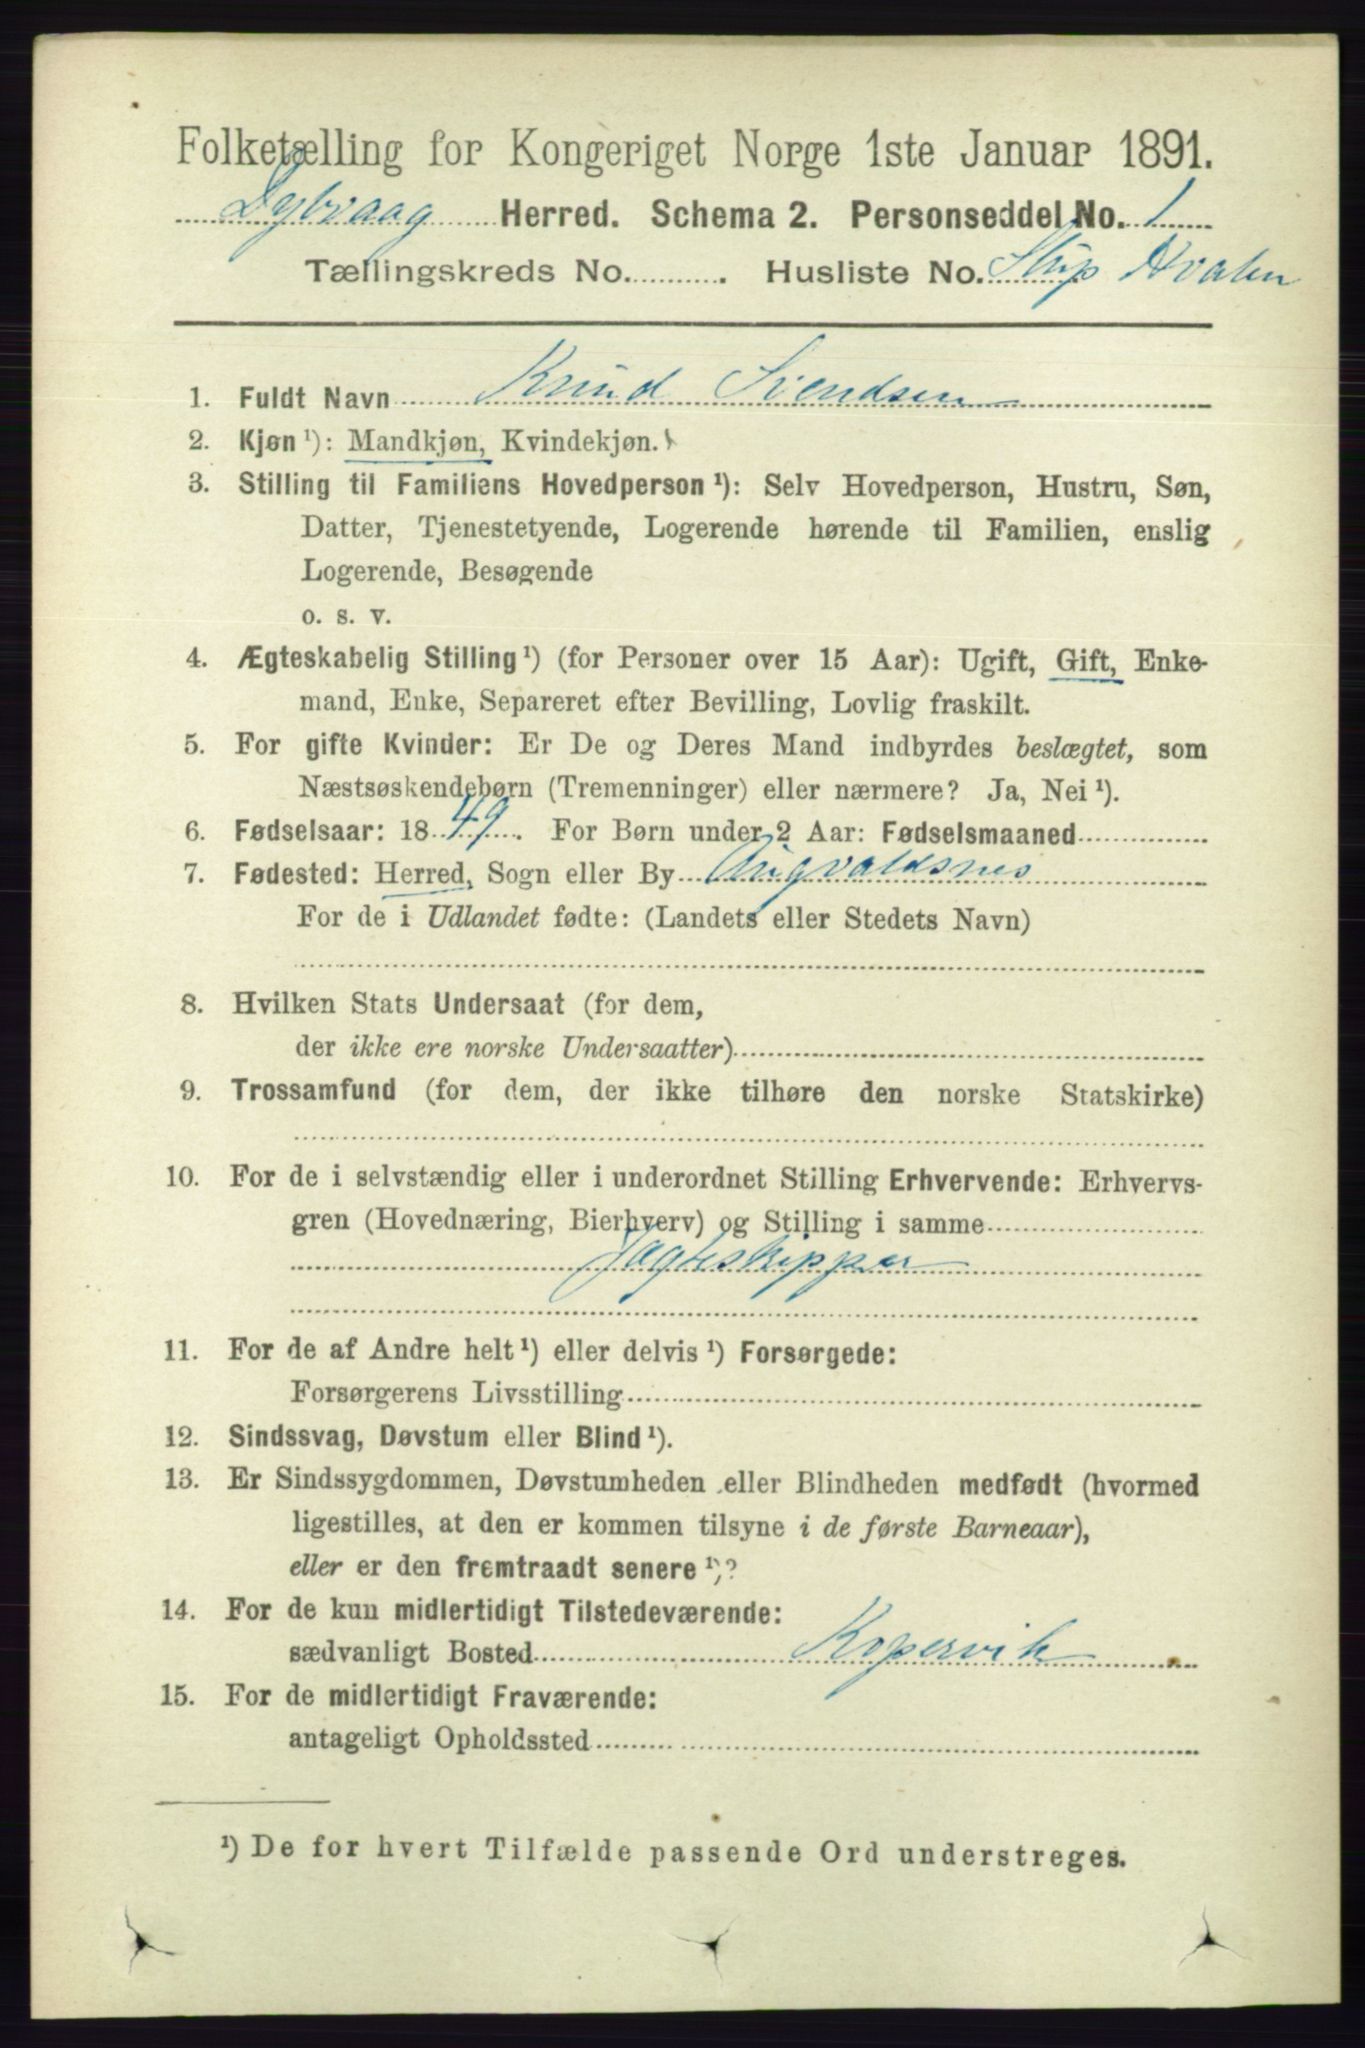 Folketælling for Kongeriget Norge 1ste Januar 1891.
Dybvaag Herred. Schema 2. Personseddel No. 1
Tællingskreds No. Husliste No. Skip Hvalen
1. Fuldt Navn Knud Svendsen
2. Kjøn ¹): Mandkjøn, Kvindekjøn.
3. Stilling til Familiens Hovedperson ¹): Selv Hovedperson, Hustru, Søn,
Datter, Tjenestetyende, Logerende hørende til Familien, enslig
Logerende, Besøgende
o. s. v.
4. Ægteskabelig Stilling ¹) (for Personer over 15 Aar): Ugift, Gift, Enke-
mand, Enke, Separeret efter Bevilling, Lovlig fraskilt.
5. For gifte Kvinder: Er De og Deres Mand indbyrdes beslægtet, som
Næstsøskendebørn (Tremenninger) eller nærmere? Ja, Nei ¹).
6. Fødselsaar: 1849. For Børn under 2 Aar: Fødselsmaaned
7. Fødested: Herred, Sogn eller By Augvaldsnes
For de i Udlandet fødte: (Landets eller Stedets Navn)
8. Hvilken Stats Undersaat (for dem,
der ikke ere norske Undersaatter)
9. Trossamfund (for dem, der ikke tilhøre den norske Statskirke)
10. For de i selvstændig eller i underordnet Stilling Erhvervende: Erhvervs-
gren (Hovednæring, Bierhverv) og Stilling i samme
Jagteskipper
11. For de af Andre helt ¹) eller delvis ¹) Forsørgede:
Forsørgerens Livsstilling
12. Sindssvag, Døvstum eller Blind ¹).
13. Er Sindssygdommen, Døvstumheden eller Blindheden medfødt (hvormed
ligestilles, at den er kommen tilsyne i de første Barneaar),
eller er den fremtraadt senere ¹)?
14. For de kun midlertidigt Tilstedeværende:
sædvanligt Bosted Kopervik
15. For de midlertidigt Fraværende:
antageligt Opholdssted
¹) De for hvert Tilfælde passende Ord understreges.